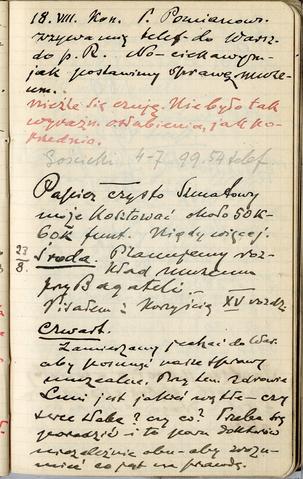 18. VIII. Kon. S. Pomianow.
wzywamy telef. do Warsz.
do p. R. No-ciekawym-
jak postawimy sprawę muze-
um.
nieźle się czuję. Nie było tak
wyraźn. osłabienia, jak po-
przednio.
Gościcki 4-7 99.54 telef.
Papier czysto szmatowy
może kosztować około 50 k-
60k funt. Nigdy więcej.
23/8. Środa. Planujemy roz-
kład muzeum
przy Bagateli.
Pisałem z Korzyścią XV rozdz.
Czwart.
Zamierzamy jechać do War.
aby posunąć nasze sprawy
muzealne. Przy tem zdrowie
Luni jest jakieś wątłe - czy
serce słabe? czy co? Trzeba się
poradzić i to paru doktorów
niezależnie obu - aby zrozu-
mieć co jest na prawdę.